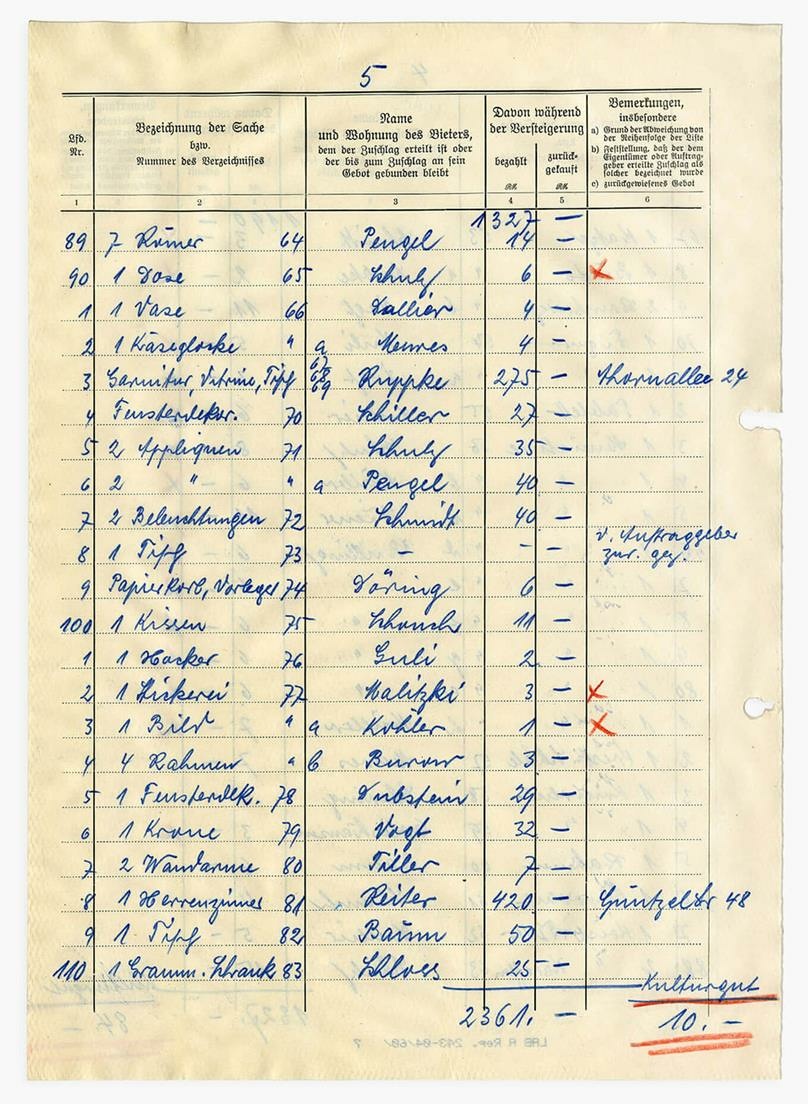 5
Lfd. Nr.
Bezeichnung der Sache
bzw.
Nummer des Verzeichnisses
Name
und Wohnung des Bieters,
dem der Zuschlag erteilt ist oder
der bis zum Zuschlag an sein
Gebot gebunden bleibt
Davon während
der Versteigerung
bezahlt
RM
zurück-
gekauft
RM
Bemerkungen,
insbesondere
a) Grund der Abweichung von
der Reihenfolge der Liste
b) Feststellung, daß der dem
Eigentümer oder Auftrag-
geber erteilte Zuschlag als
solcher bezeichnet wurde
c) zurückgewiesenes Gebot
1 2 3 4 5 6
1327 —
89 7 Römer 64 Pengel 14 —
90 1 Dose 65 Schulz 6 — x
1 1 Vase 66 4 —
2 1 Käseglocke " a Meures 4 —
3 Garnitur, Vitrine, Tisch 67 68 69 Kuppke 275 — Ahornallee 24
4 Fensterdekor. 70 Schiller 27 —
5 2 Appliquen 71 Schulz 35 —
6 2 " " a Pengel 40 —
7 2 Beleuchtungen 72 Schmidt 40 —
8 1 Tisch 73 — - — v. Auftraggeber
zur. gez.
9 Papierkorb, Vorleger 74 Döring 6 —
100 1 Kissen 75 11 —
1 1 Hocker 76 Guli 2 —
2 1 Stickerei 77 Malitzki 3 — x
3 1 Bild " a Köhler 1 — x
4 4 Rahmen " b Burow 3 —
5 1 Fensterdek. 78 Dubstein 29 —
6 1 Krone 79 Vogt 32 —
7 2 Wandarme 80 Tiller 7 —
8 1 Herrenzimmer 81 Reiter 420 — Güntzelstr 48
9 1 Tisch 82 Baum 50 —
110 1 Gramm. Schrank 83 Schloes 25 —
Kulturgut
2361. — 10. —